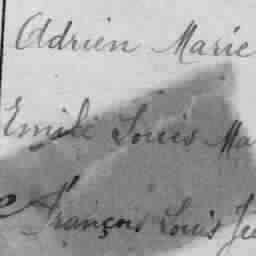 Adrien Marie
Emile Louis Ma
François Louis Je